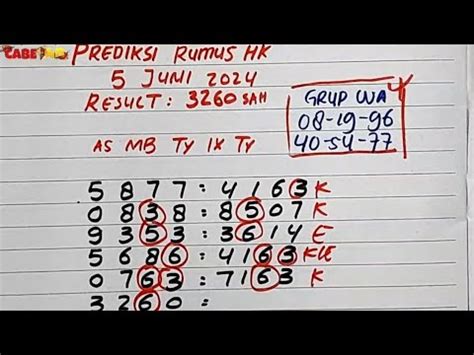 CABE
PREDIKSI RUMUS HK
5 JUNI 2024
RESULT : 3260 SAH
GRUP WA
08-19-96
40-54-77
AS MB Ty IX Ty
5 8 7 7 : 4 1 6 3 K
0 8 3 8 : 8 5 0 7 K
9 3 5 3 : 3 6 1 4 E
5 6 8 6 : 4 1 6 3 KLE
0 7 6 3 : 7 1 6 3 K
3 2 6 0 :